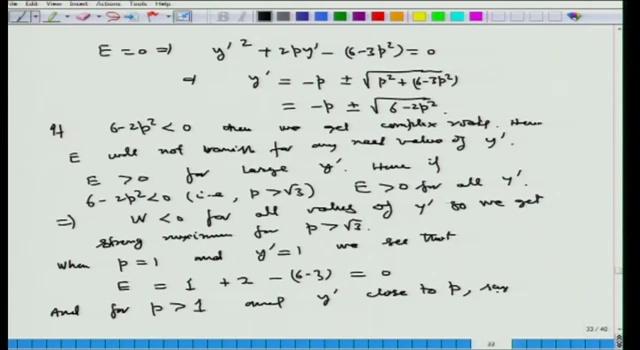 Edit View Insert Actions Tools Help
E = 0 ⇒ y'² + 2py' - (6-3p²) = 0
⇒ y' = -p ± √(p² + (6-3p²))
= -p ± √(6-2p²)
If 6-2p² < 0 then we get complex roots. Hence
E will not vanish for any real value of y'.
E > 0 for large y'. Hence if
6-2p² < 0 (i.e., p > √3) E > 0 for all y'.
⇒) W < 0 for all values of y' so we get
strong maximum for p > √3.
When p = 1 and y' = 1 we see that
E = 1 + 2 - (6-3) = 0
And for p > 1 and y' close to p, say
33 / 40
33